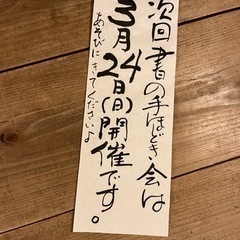 次回書の手ほどき会は
3月24日(日)開催です。
あそびにきてくださいよ